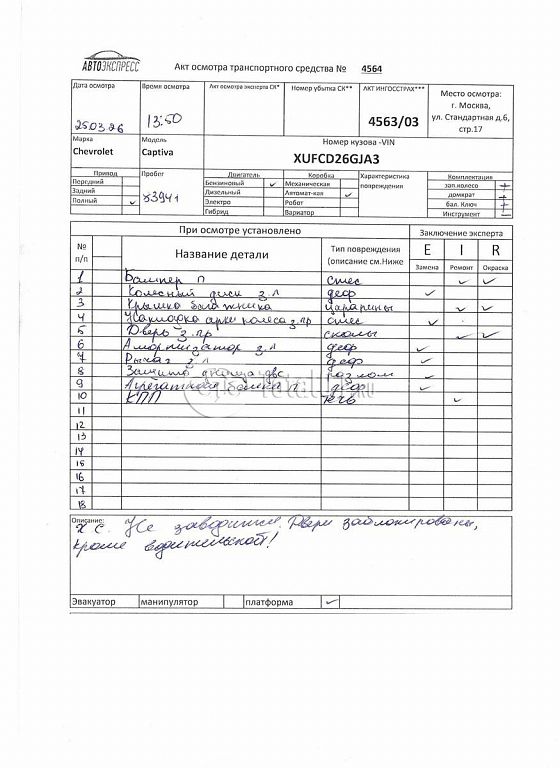 АВТОЭКСПРЕСС
Акт осмотра транспортного средства № 4564
Дата осмотра
25.03.26
Время осмотра
13:50
Акт осмотра эксперта СК*
Номер убытка СК**
АКТ ИНГОССТРАХ***
4563/03
Место осмотра:
г. Москва,
ул. Стандартная д.6,
стр.17
Марка
Chevrolet
Модель
Captiva
Номер кузова -VIN
XUFCD26GJA3
Привод
Передний
Задний
Полный ✓
Пробег
Двигатель
Бензиновый ✓
Дизельный
Электро
Гибрид
Коробка
Механическая
Автомат-кая ✓
Робот
Вариатор
Характеристика
повреждения
Комплектация
зап.колесо +
домкрат +
бал. Ключ +
Инструмент –
При осмотре установлено
Заключение эксперта
№
п/п
Название детали
Тип повреждения
(описание см.Ниже
E I R
Замена Ремонт Окраска
1 Бампер п смес ✓ ✓
2 Колесный диск з.л деф ✓
3 Крышка багажника царапины ✓ ✓
4 Накладка арки колеса з.пр смес ✓
5 Дверь з.пр сколы ✓ ✓
6 Амортизатор з.л деф ✓
7 Рычаг з.л деф ✓
8 Защита днища двс разлом ✓
9 Агрегатная деф ✓
10 КПП ✓
11
12
13
14
15
16
17
18
Описание:
Не заводится. Двери заблокированы,
кроме водительской!
Эвакуатор манипулятор платформа ✓